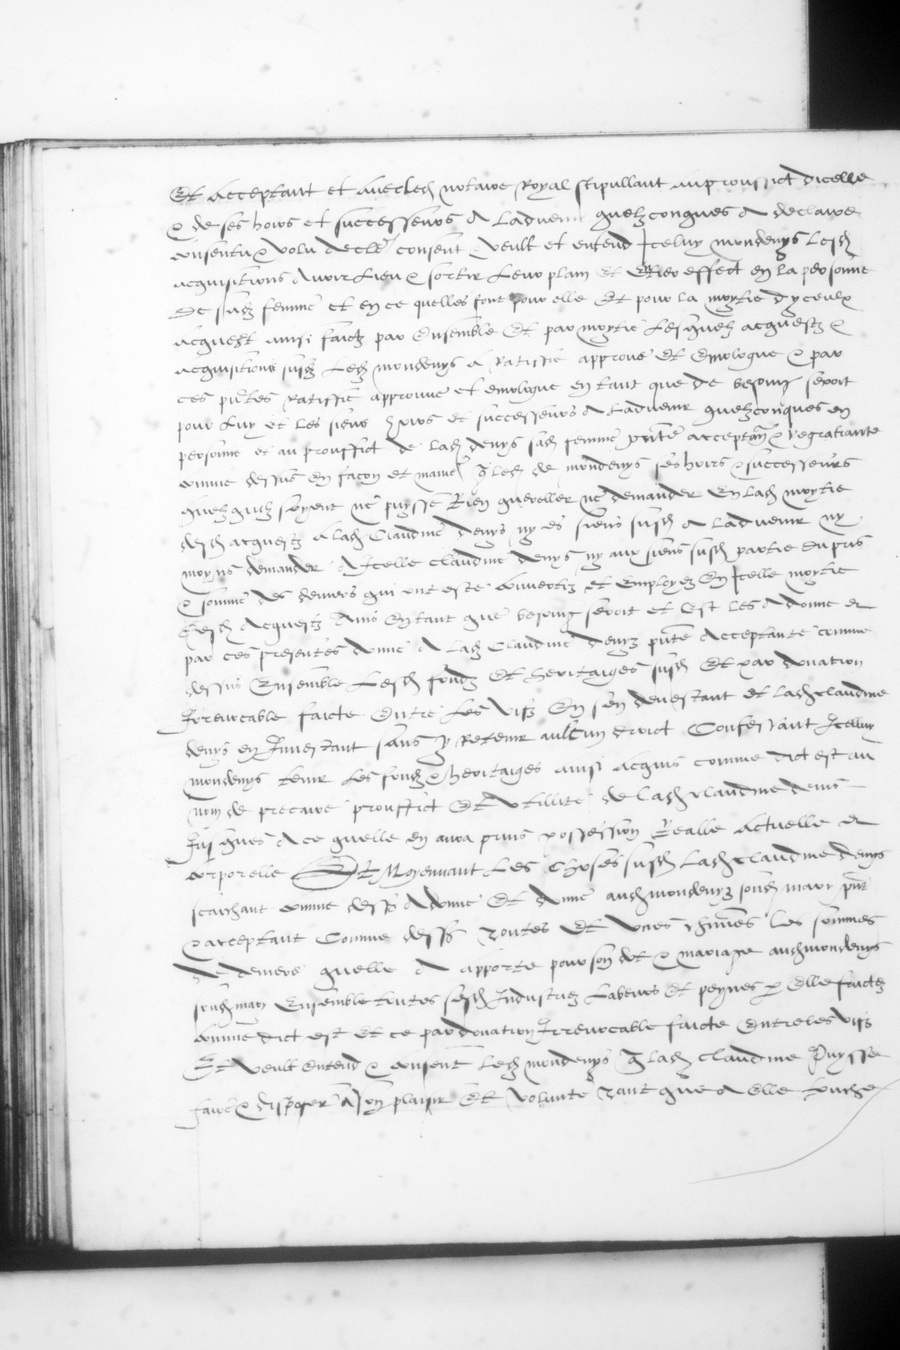 Et acceptant et avecled notaire Royal stipullant auprouffict dicelle
& de ses hoirs et successeurs A Ladvenir quelzconques A declaire
consentu & volu declere consent veult et entend Icelluy mondenys Lesd
acquisitions Avoir Lieu & sortir Leur plain et entier effect en la personne
De sad femme et en ce quelles sont pour elle Et pour la moytie dyceulx
acquestz ainsi faictz par Ensemble Et par moytie Lesquelz acquestz &
acquisitions susd Led mondenys A Ratiffie approuve Et Emologue & par
ces pntes Ratiffie approuve et emologue en tant que de besoing seroit
pour Luy et les siens hoirs et successeurs A Ladvenir quelzconques en
personne et au prouffict de lad denys sad femme pnte acceptant & regratiante
comme dessus en facon et maniere q Led de mondenys ses hoirs & successeurs
quelzquelz soyent ne puysse Rien quereller ne demander En Lad moytie
desd acquestz A lad Claudine denys ny es siens susd A Ladvenir ny
moyns demander A Icelle claudine denys ny aux siens susd partie du pris
& somme des deniers qui ont este convertiz et Employez En Icelle moytie
desd Acquestz Ains Entant que besoing seroit et Est Les A donne et
par ces presentes donne A Lad Claudine denys pnte Acceptante comme
dessus Ensemble Lesd fondz Et heritaiges susd Et par donation
Irrevocable faicte Entre Les vifz En sen devestant et Lad claudine
denys en Investant sans y Retenir aulcun droict Confessant Icelluy
mondenys tenir Les fondz & heritaiges ainsi acquis comme dict est au
nom de precaire prouffict Et utillite de Lad claudine denis
Jusques A ce quelle en aura prins possession Realle Actuelle et
corporelle Et Moyennant Les Choses susd Lad claudine denys
scachant comme dessus A donne Et donne aud mondenyz sond mary pnt
& acceptant Comme dessus toutes Et unes chescunes Les sommes
de deniers quelle A apporte pour son dot & mariage aud mondenys
sond mary Ensemble toutes sesd Industries Labeurs Et peynes p Elle faictes
comme dict est Et ce par donation Irrevocable faicte Entre les vifz
Et veult Entend & consent Led mondenys q Lad claudine Puysse
faire & disposer A son plaisir Et volunte Tant que A Elle touche